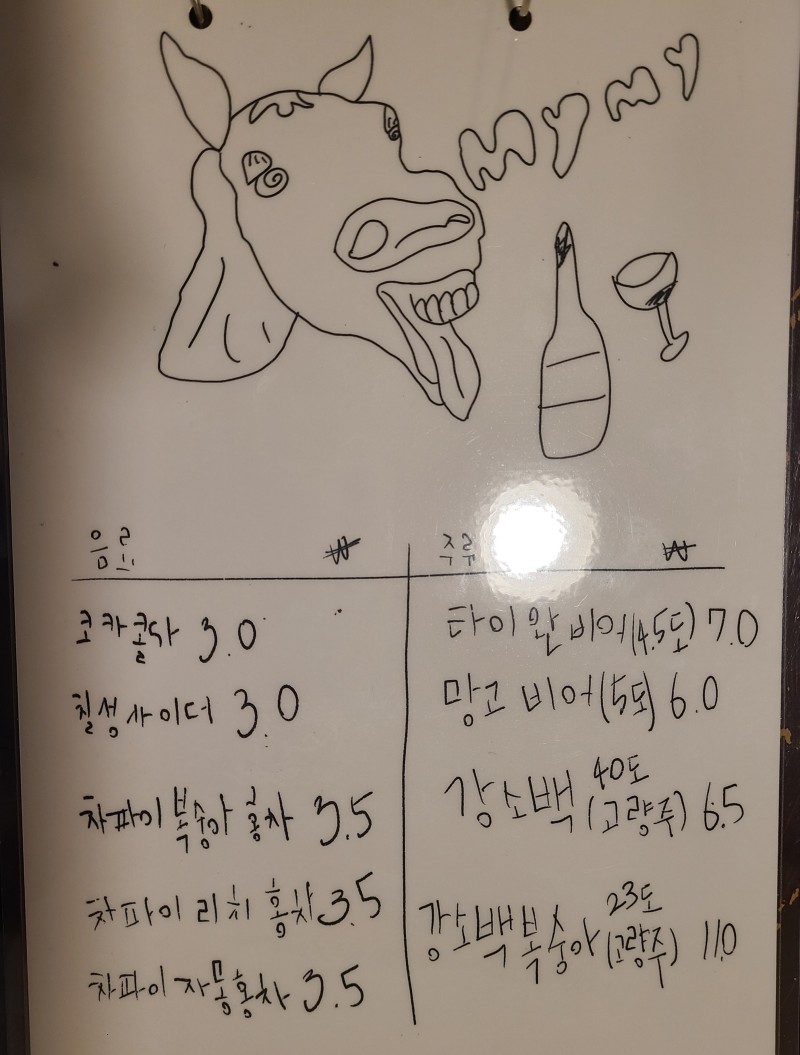 MYMY
음료 ₩
코카콜라 3.0
칠성사이더 3.0
차파이 복숭아 홍차 3.5
차파이 리치 홍차 3.5
차파이 자몽홍차 3.5
주류 ₩
타이완 비어(4.5도) 7.0
망고 비어(5도) 6.0
강소백 40도 (고량주) 6.5
강소백복숭아 23도 (고량주) 11.0